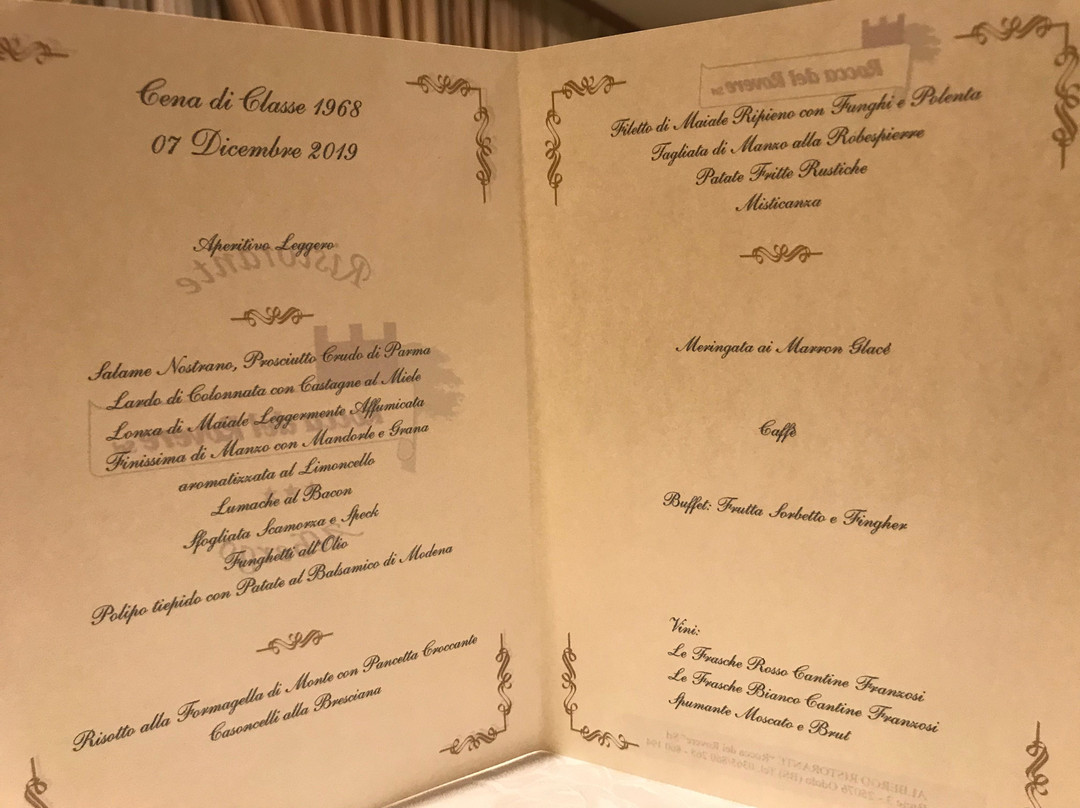 Cena di Classe 1968
07 Dicembre 2019
Aperitivo Leggero
Ristorante
Salame Nostrano, Prosciutto Crudo di Parma
Lardo di Colonnata con Castagne al Miele
Lonza di Maiale Leggermente Affumicata
Finissima di Manzo con Mandorle e Grana
aromatizzata al Limoncello
Lumache al Bacon
Sfogliata Scamorza e Speck
Funghetti all'Olio
Polipo tiepido con Patate al Balsamico di Modena
Risotto alla Formagella di Monte con Pancetta Croccante
Casoncelli alla Bresciana
Rocca del Rovere
Filetto di Maiale Ripieno con Funghi e Polenta
Tagliata di Manzo alla Robespierre
Patate Fritte Rustiche
Misticanza
Meringata ai Marron Glacé
Caffè
Buffet: Frutta Sorbetto e Fingher
Vini:
Le Frasche Rosso Cantine Franzosi
Le Frasche Bianco Cantine Franzosi
Spumante Moscato e Brut